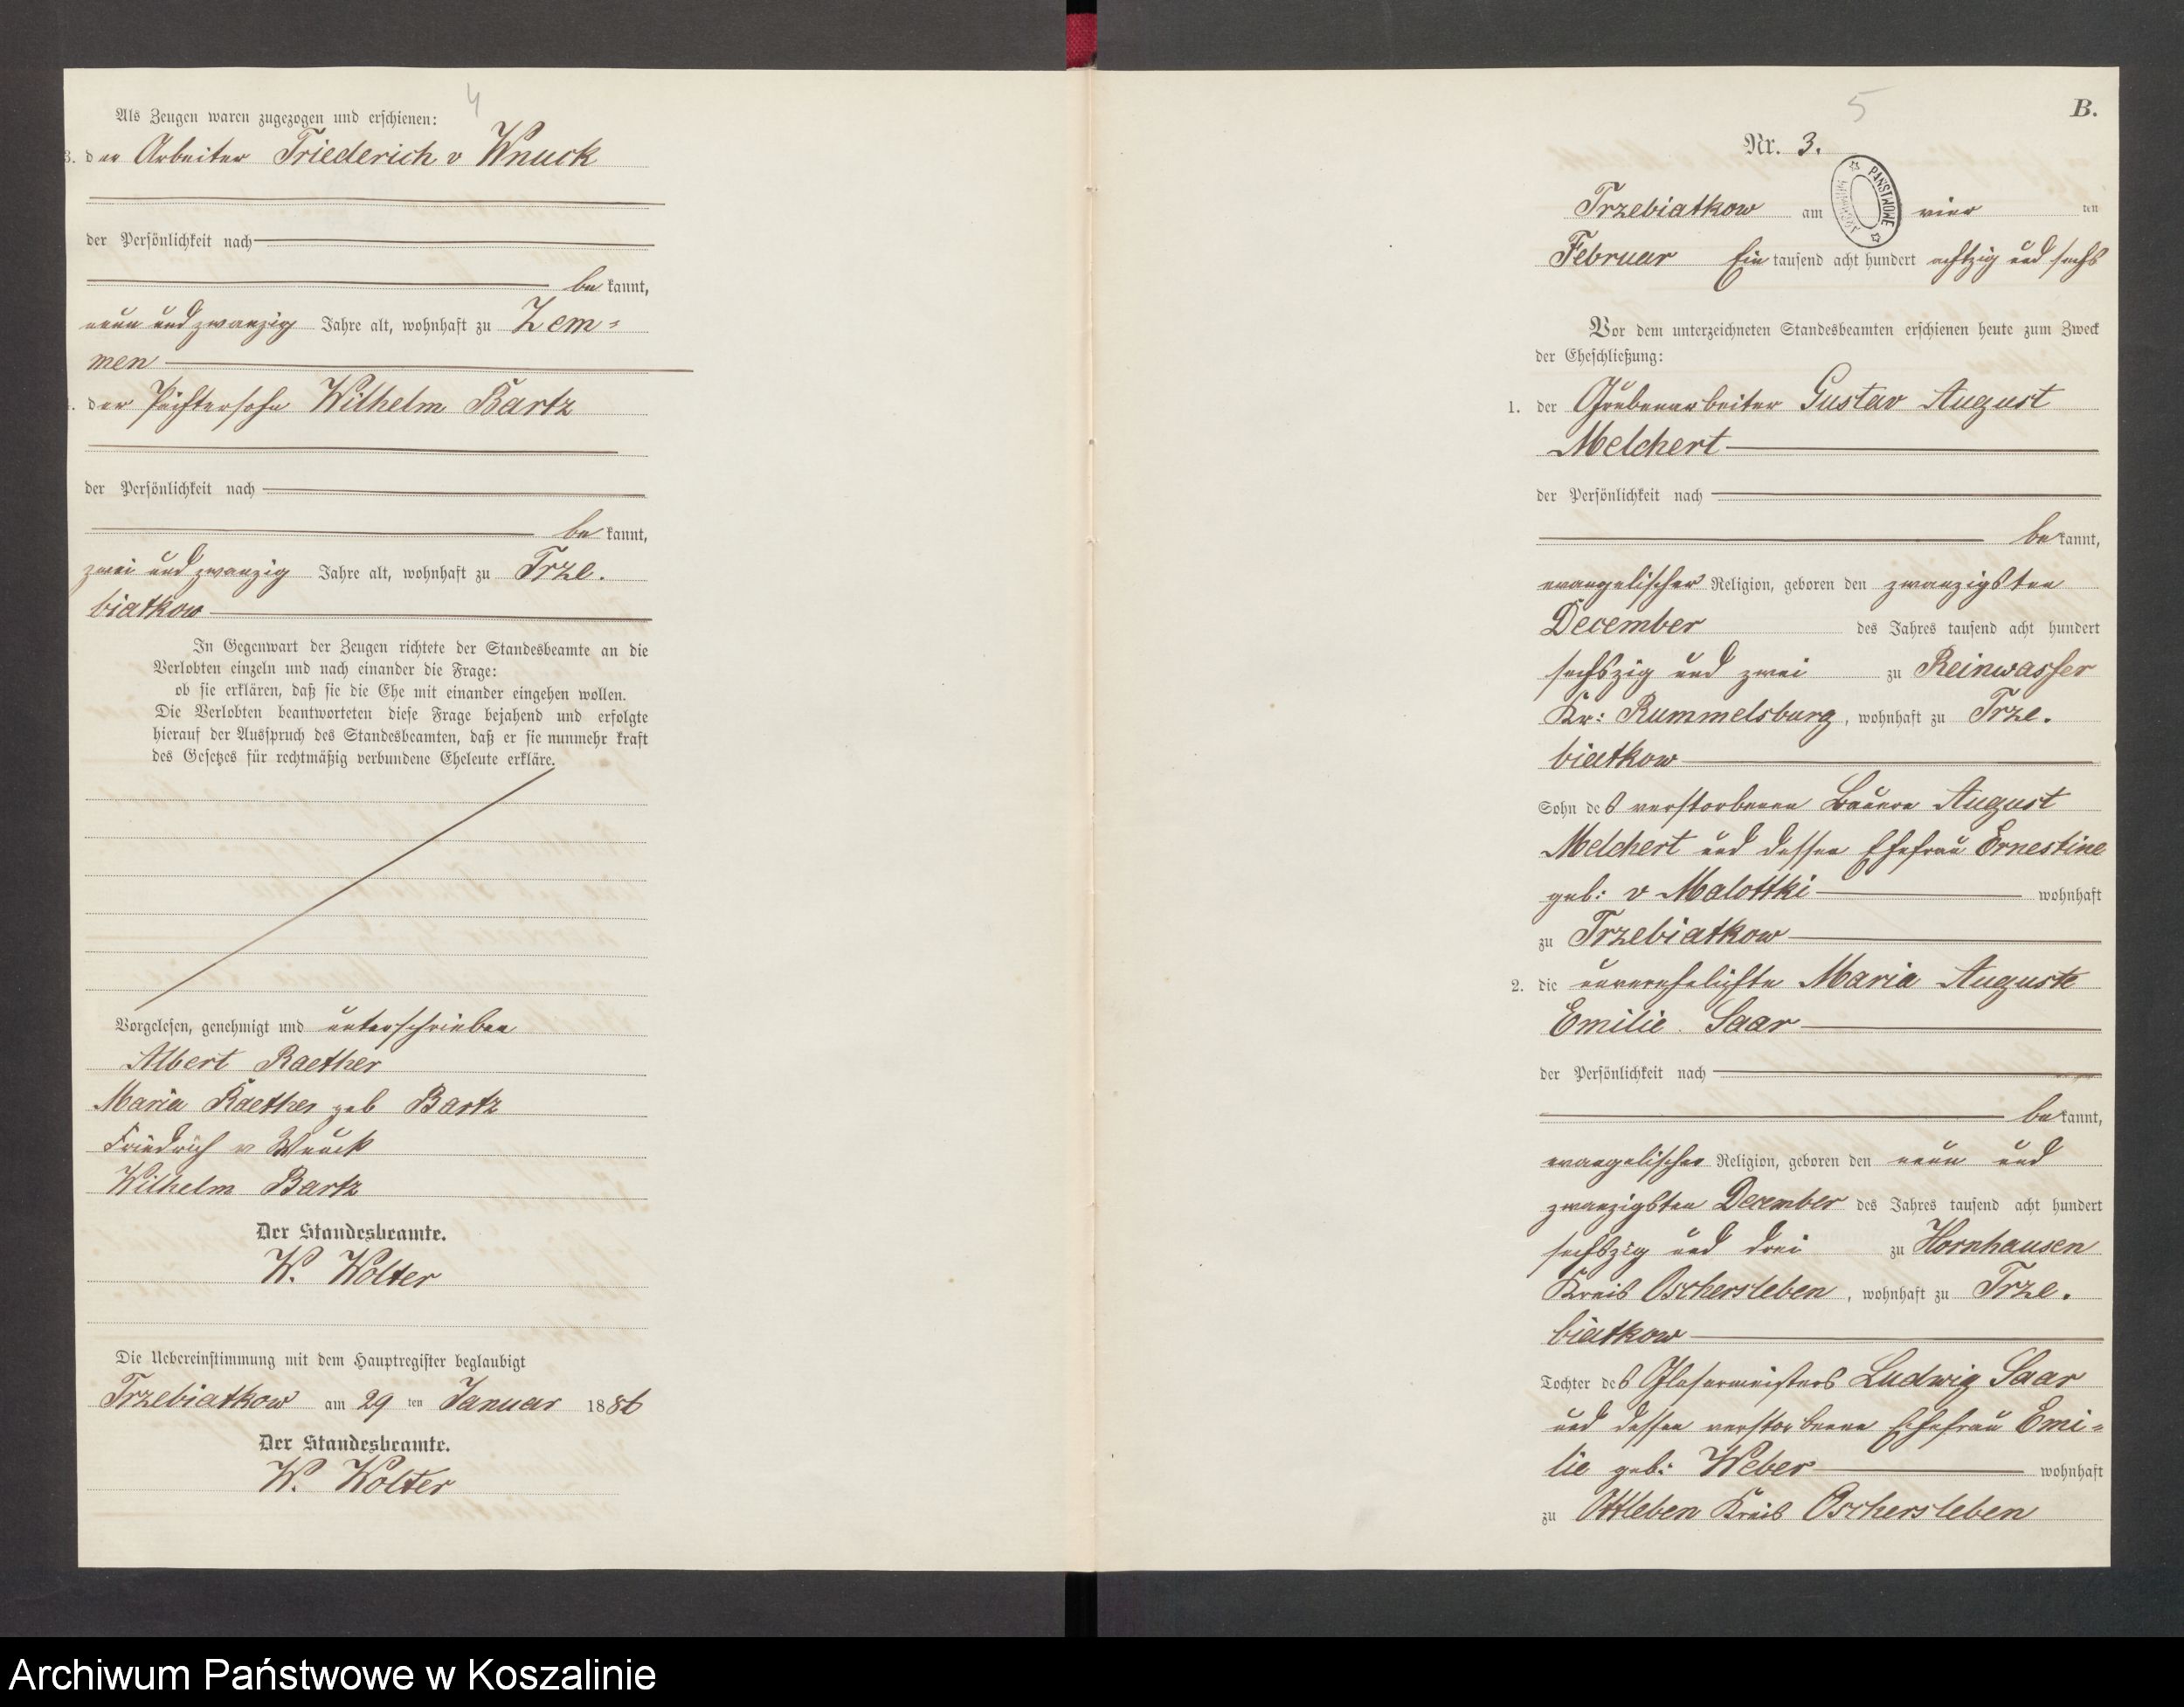 4
Als Zeugen waren zugezogen und erschienen:
3. der Arbeiter Friederich v Wnuck
der Persönlichkeit nach
be kannt,
neun und zwanzig Jahre alt, wohnhaft zu Zem=
men
der Pächtersohn Wilhelm Bartz
der Persönlichkeit nach
be kannt,
zwei und zwanzig Jahre alt, wohnhaft zu Trze.
biatkow
In Gegenwart der Zeugen richtete der Standesbeamte an die
Verlobten einzeln und nach einander die Frage:
ob sie erklären, daß sie die Ehe mit einander eingehen wollen.
Die Verlobten beantworteten diese Frage bejahend und erfolgte
hierauf der Ausspruch des Standesbeamten, daß er sie nunmehr kraft
des Gesetzes für rechtmäßig verbundene Eheleute erkläre.
Vorgelesen, genehmigt und unterschrieben
Albert Raether
Maria Raether geb Bartz
Friedrich v Wnuck
Wilhelm Bartz
Der Standesbeamte.
W. Wolter
Die Uebereinstimmung mit dem Hauptregister beglaubigt
Trzebiatkow am 29 ten Januar 1886
Der Standesbeamte.
W. Wolter
5
B.
Nr. 3.
PAŃSTWOWE
Trzebiatkow am vier ten
Februar Ein tausend acht hundert achtzig und sechs
Vor dem unterzeichneten Standesbeamten erschienen heute zum Zweck
der Eheschließung:
1. der Grubenarbeiter Gustav August
Melchert
der Persönlichkeit nach
be kannt,
evangelischer Religion, geboren den zwanzigsten
December des Jahres tausend acht hundert
sechszig und zwei zu Reinwasser
Kr: Rummelsburg, wohnhaft zu Trze.
biatkow
Sohn des verstorbenen Bauern August
Melchert und dessen Ehefrau Ernestine
geb: v Malottki wohnhaft
zu Trzebiatkow
2. die unverehelichte Maria Auguste
Emilie Saar
der Persönlichkeit nach
be kannt,
evangelischer Religion, geboren den neun und
zwanzigsten December des Jahres tausend acht hundert
sechszig und drei zu Hornhausen
Kreis Oschersleben, wohnhaft zu Trze.
biatkow
Tochter des Glasermeisters Ludwig Saar
und dessen verstorbene Ehefrau Emi=
lie geb: Weber wohnhaft
zu Ottleben Kreis Oschersleben
Archiwum Państwowe w Koszalinie